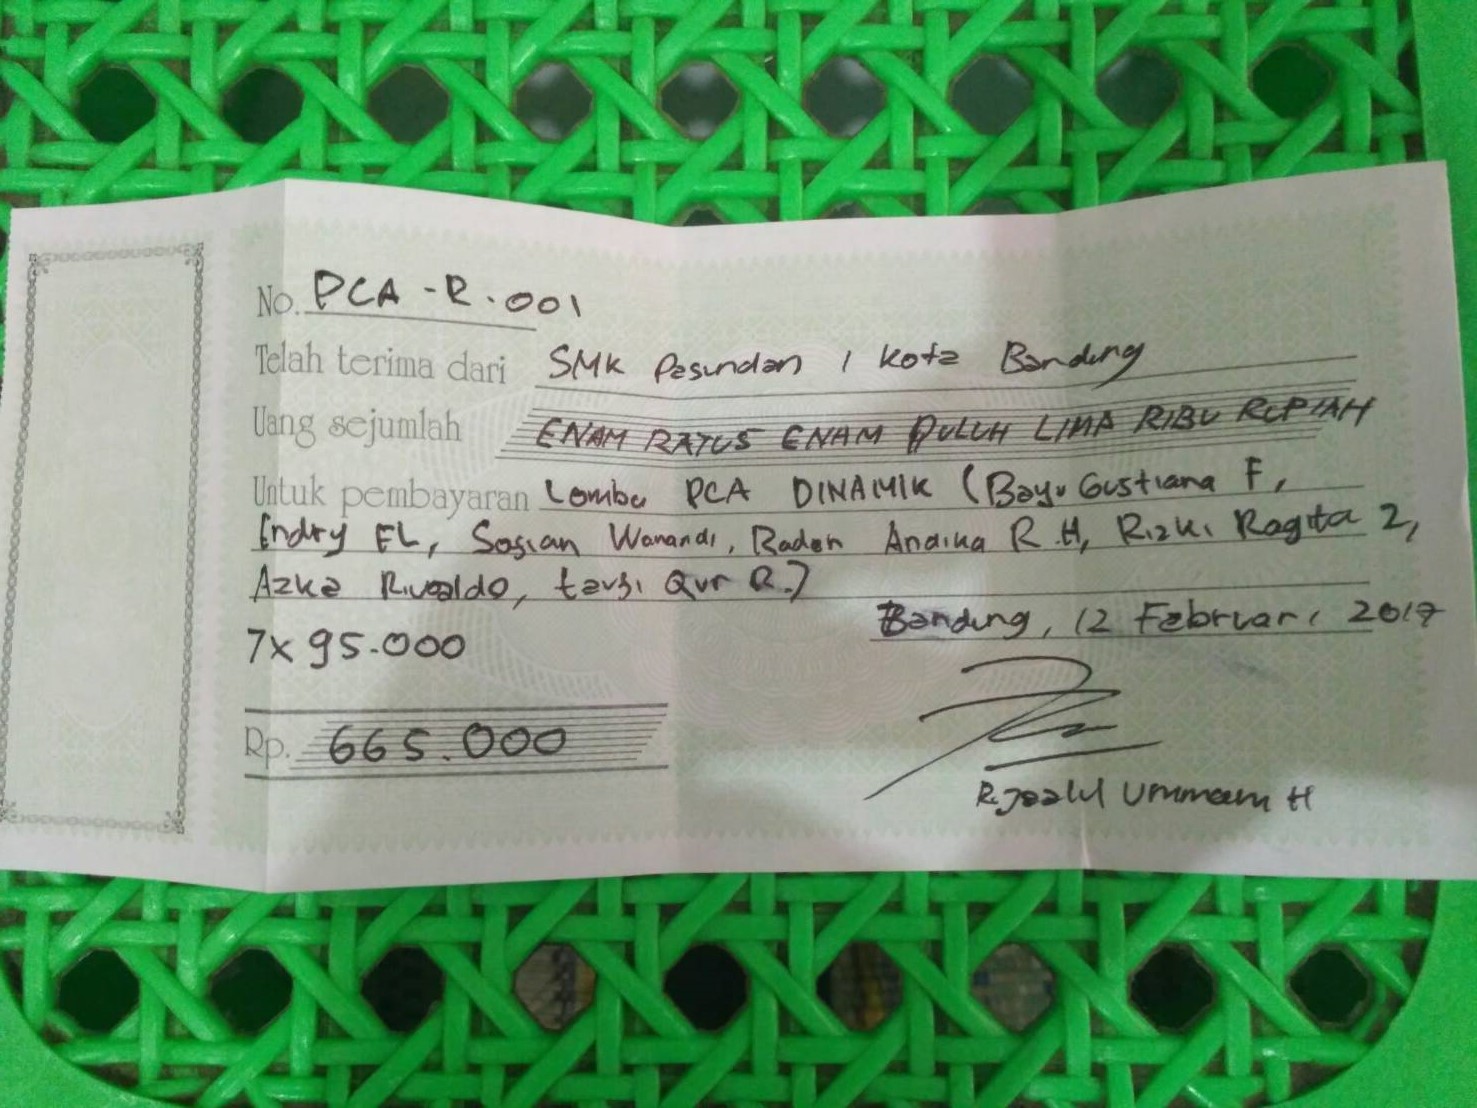 No. PCA - R. 001
Telah terima dari SMK Pasundan 1 Kota Bandung
Uang sejumlah ENAM RATUS ENAM PULUH LIMA RIBU RUPIAH
Untuk pembayaran Lomba PCA DINAMIK (Bayu Gustiana F,
Endry FL, Sosian Wanandi, Raden Andika R.H, Rizki Ragita 2,
Azka Rivaldo, Qur R.)
Bandung, 12 Februari 2017
7x 95.000
Rp. 665.000
Ummam H